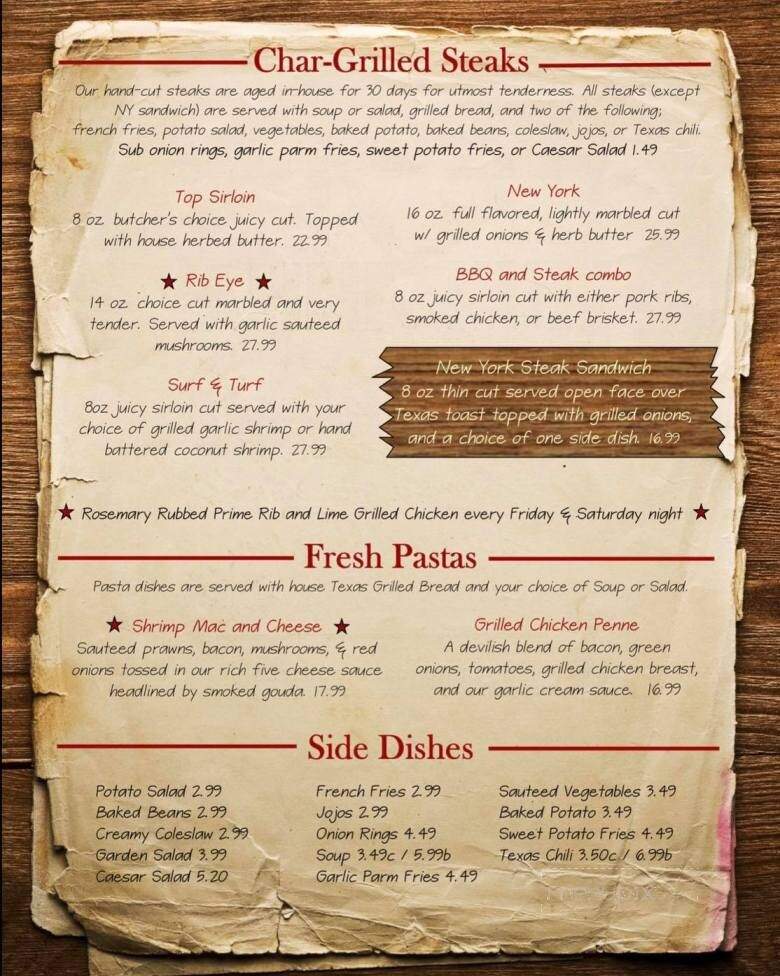 Char-Grilled Steaks
Our hand-cut steaks are aged in-house for 30 days for utmost tenderness. All steaks (except
NY sandwich) are served with soup or salad, grilled bread, and two of the following;
french fries, potato salad, vegetables, baked potato, baked beans, coleslaw, jojos, or Texas chili.
Sub onion rings, garlic parm fries, sweet potato fries, or Caesar Salad 1.49
Top Sirloin
8 oz. butcher's choice juicy cut. Topped
with house herbed butter. 22.99
Rib Eye
14 oz. choice cut marbled and very
tender. Served with garlic sauteed
mushrooms. 27.99
Surf & Turf
8oz juicy sirloin cut served with your
choice of grilled garlic shrimp or hand
battered coconut shrimp. 27.99
New York
16 oz. full flavored, lightly marbled cut
w/ grilled onions & herb butter 25.99
BBQ and Steak combo
8 oz juicy sirloin cut with either pork ribs,
smoked chicken, or beef brisket. 27.99
New York Steak Sandwich
8 oz thin cut served open face over
Texas toast topped with grilled onions,
and a choice of one side dish. 16.99
Rosemary Rubbed Prime Rib and Lime Grilled Chicken every Friday & Saturday night
Fresh Pastas
Pasta dishes are served with house Texas Grilled Bread and your choice of Soup or Salad.
Shrimp Mac and Cheese
Sauteed prawns, bacon, mushrooms, & red
onions tossed in our rich five cheese sauce
headlined by smoked gouda. 17.99
Grilled Chicken Penne
A devilish blend of bacon, green
onions, tomatoes, grilled chicken breast,
and our garlic cream sauce. 16.99
Side Dishes
Potato Salad 2.99
Baked Beans 2.99
Creamy Coleslaw 2.99
Garden Salad 3.99
Caesar Salad 5.20
French Fries 2.99
Jojos 2.99
Onion Rings 4.49
Soup 3.49c / 5.99b
Garlic Parm Fries 4.49
Sauteed Vegetables 3.49
Baked Potato 3.49
Sweet Potato Fries 4.49
Texas Chili 3.50c / 6.99b